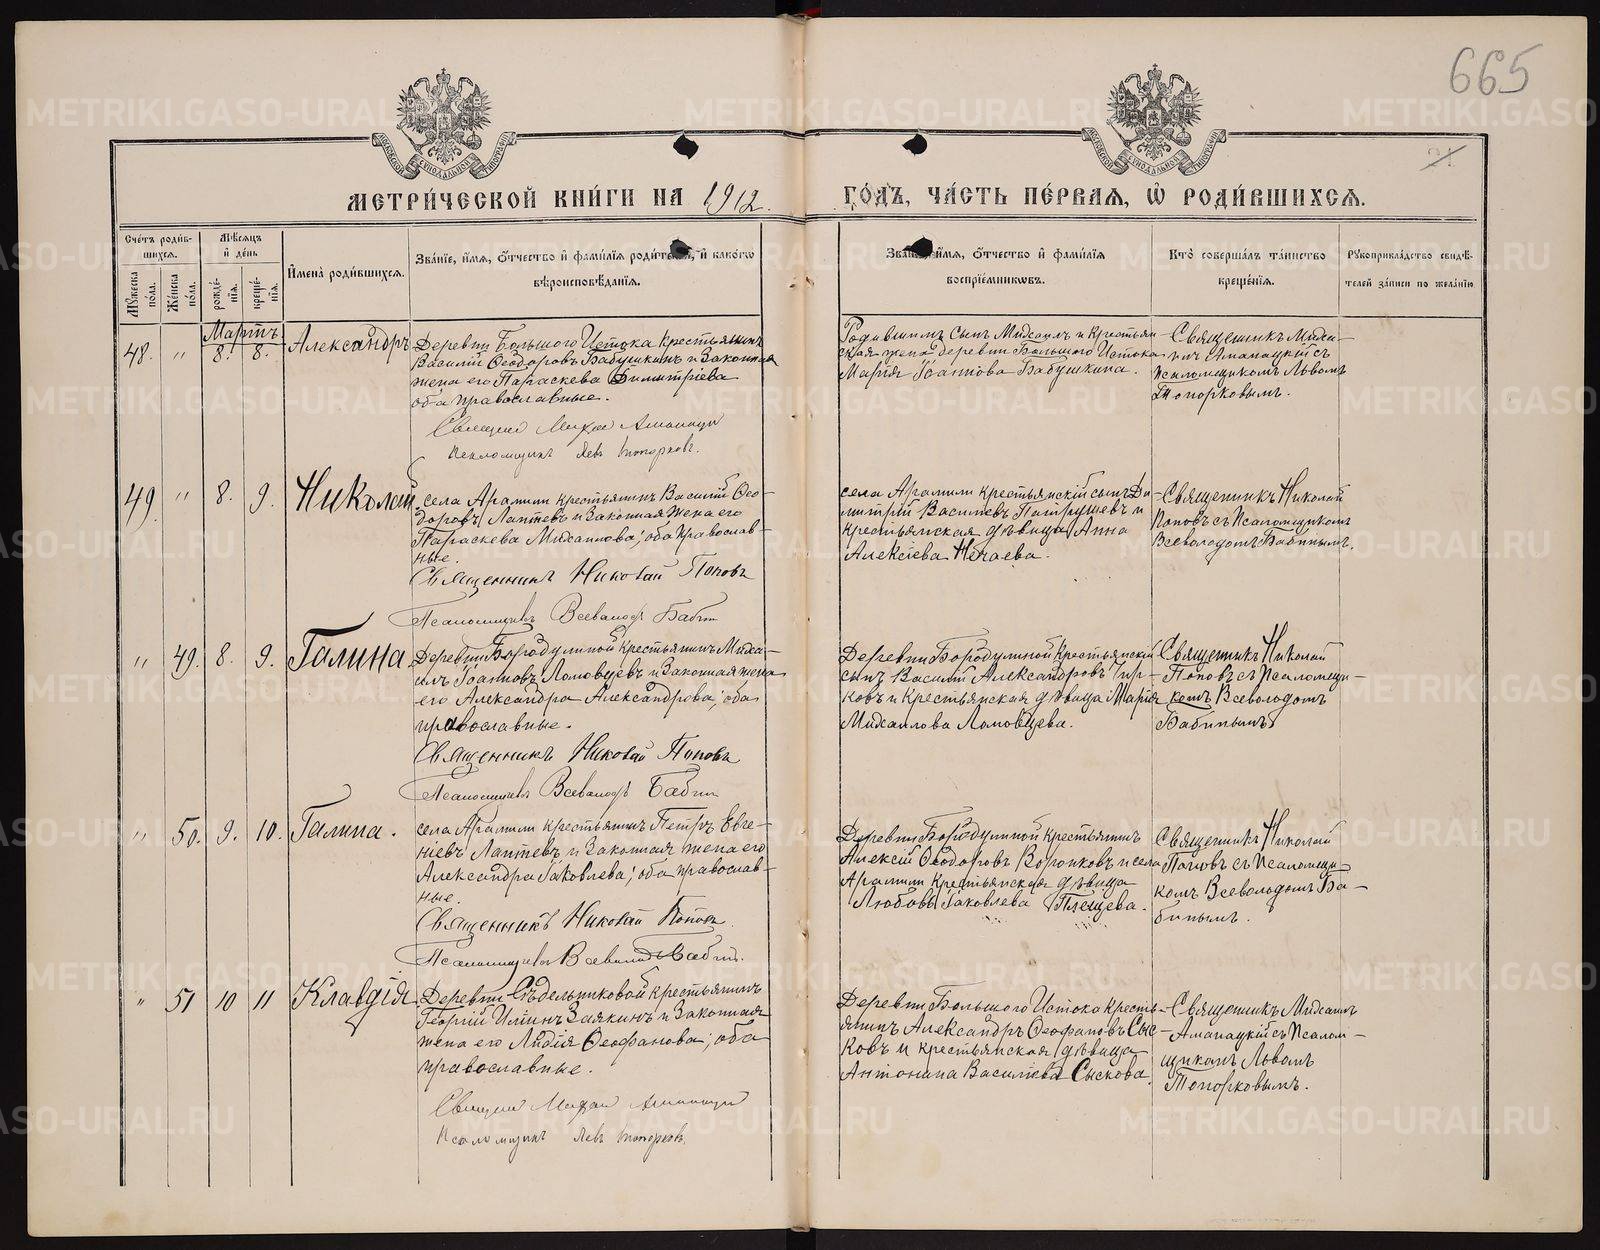 665
21
МЕТРИ́ЧЕСКОЙ КНИ́ГИ НА 1912
ГО́ДЪ, ЧА́СТЬ ПЕ́РВАЯ, Ѡ҆ РОДИ́ВШИХСЯ.
Сче́тъ роди́вшихся.
Мѣ́сяцъ и҆ день
Мꙋ́жеска пола.
Же́нска по́ла.
рожде́нїя.
креще́нїя.
И҆мена̀ роди́вшихся.
Зва́нїе, и҆́мя, ѻ҆́тчество и҆ фами́лїя роди́телей, и҆ како́гѡ вѣроисповѣ́данїя.
Зва́нїе, и҆́мя, ѻ҆́тчество и҆ фами́лїя воспрїе́мникѡвъ.
Кто̀ соверша́лъ та́инство креще́нїя.
Рꙋкоприкла́дство свидѣ́телей за́писи по жела́нїю
Мартъ
48. " 8. 8. Александръ
Деревни Большого Истока крестьянинъ
Василій Ѳеодоровъ Бабушкинъ и законная
жена его Параскева Димитріева
оба православные.
Псаломщикъ Левъ Топорковъ.
Родившимъ сынъ Михаилъ и крестьян-
ская жена деревни Большого Истока
Марія Іоаннова Бабушкина.
Священникъ Миха-
илъ Аманацкій съ
псаломщикомъ Львомъ
Топорковымъ.
49. " 8. 9. Николай
села Арамили крестьянинъ Василій Ѳео-
доровъ Лаптевъ и законная жена его
Параскева Михаилова; оба православ-
ные.
Священникъ Николай Поповъ
Псаломщикъ Всеволодъ Бабинъ
села Арамили крестьянскій сынъ Ди-
митрій Васильевъ Патрушевъ и
крестьянская дѣвица Анна
Алексіева Нечаева.
Священникъ Николай
Поповъ съ псаломщикомъ
Всеволодомъ Бабинымъ.
" 49. 8. 9. Галина.
Деревни Бородулиной крестьянинъ Миха-
илъ Іоанновъ Ломовцевъ и законная жена
его Александра Александрова; оба
православные.
Священникъ Николай Поповъ
Псаломщикъ Всеволодъ Бабинъ
Деревни Бородулиной крестьянскій
сынъ Василій Александровъ Чир-
ковъ и крестьянская дѣвица Марія
Михаилова Ломовцева.
Священникъ Николай
Поповъ съ псаломщи-
комъ Всеволодомъ
Бабинымъ
" 50. 9. 10. Галина.
села Арамили крестьянинъ Петръ Евге-
ніевъ Лаптевъ и законная жена его
Александра Іаковлева; оба православ-
ные.
Священникъ Николай Поповъ
Псаломщикъ Всеволодъ Бабинъ.
Деревни Бородулиной крестьянинъ
Алексій Ѳеодоровъ Воронковъ и села
Арамили крестьянская дѣвица
Любовь Іаковлева Плещева.
Священникъ Николай
Поповъ съ псаломщи-
комъ Всеволодомъ Ба-
бинымъ.
" 51 10 11 Клавдія
Деревни Сѣдельниковой крестьянинъ
Георгій Иліинъ Заякинъ и законная
жена его Лидія Ѳеофанова; оба
православные.
Псаломщикъ Левъ Топорковъ.
Деревни Большого Истока кресть-
янинъ Александръ Ѳеофановъ Сыс-
ковъ и крестьянская дѣвица
Антонина Василіева Сыскова.
Священникъ Михаилъ
Аманацкій съ псалом-
щикомъ Львомъ
Топорковымъ.
METRIKI.GASO-URAL.RU